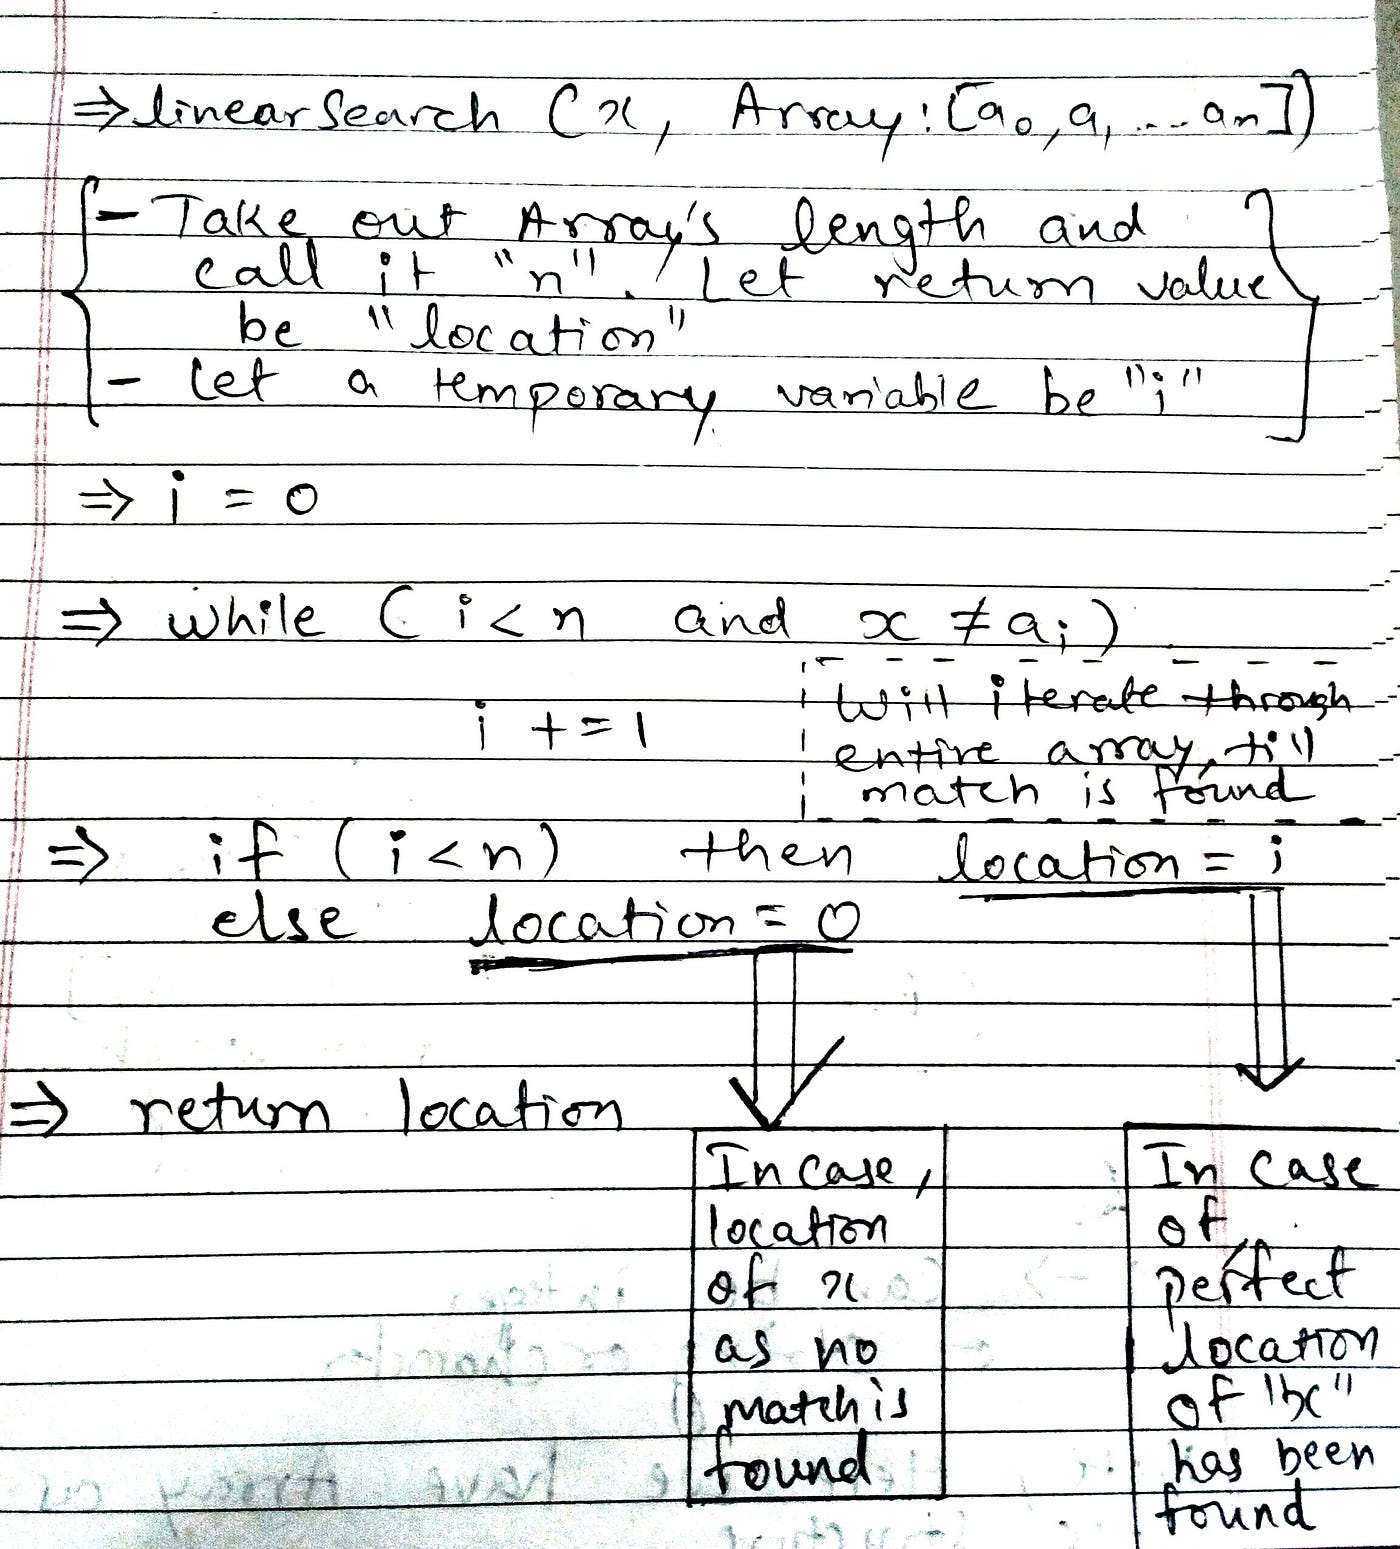 ⇒ linearSearch (x, Array: [a₀, a₁ ... aₙ])
- Take out Array's length and
call it "n". Let return value
be "location"
- Let a temporary variable be "i"
⇒ i = 0
⇒ while (i < n and x ≠ aᵢ)
i += 1
Will iterate through
entire array, till
match is found
⇒ if (i < n) then location = i
else location = 0
⇒ return location
In case,
location
of x
as no
match is
found
In case
of
perfect
location
of "x"
has been
found